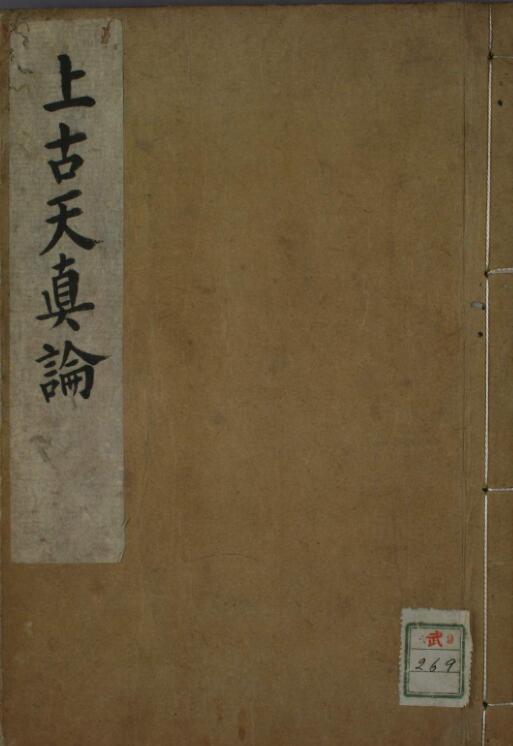 上古天真論
武
269